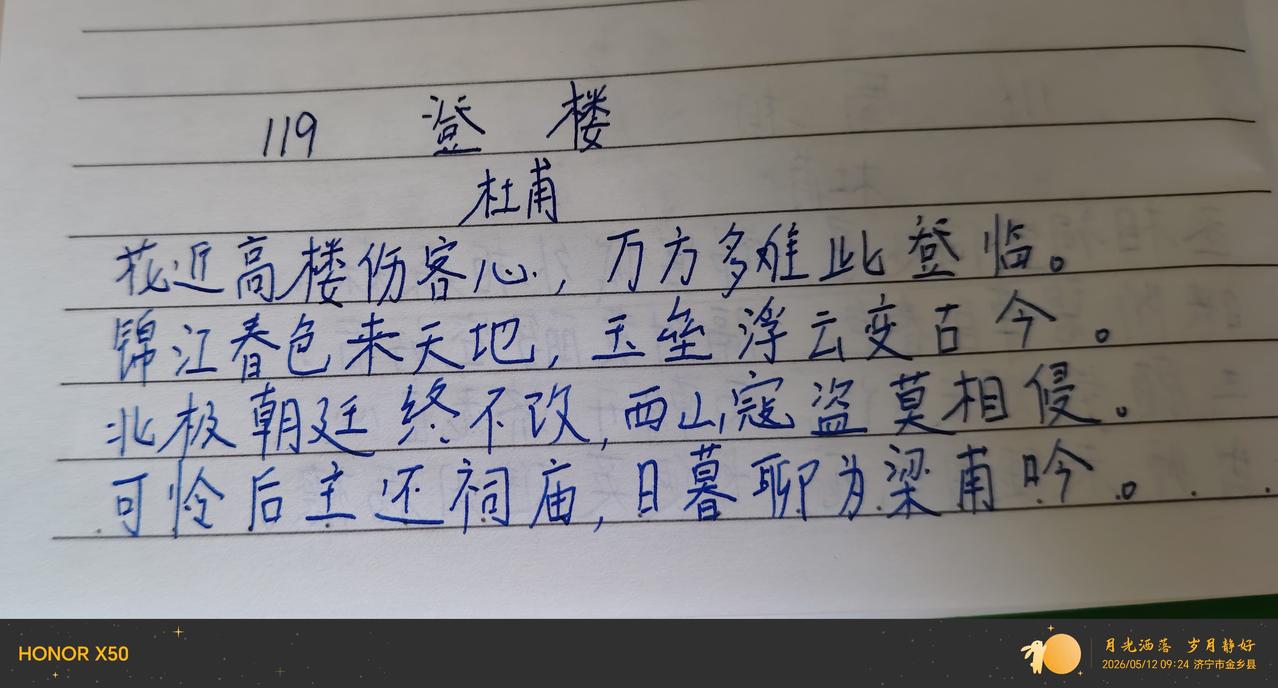 119 登楼
杜甫
花近高楼伤客心，万方多难此登临。
锦江春色来天地，玉垒浮云变古今。
北极朝廷终不改，西山寇盗莫相侵。
可怜后主还祠庙，日暮聊为梁甫吟。
HONOR X50
月光洒落 岁月静好
2026/05/12 09:24 济宁市金乡县